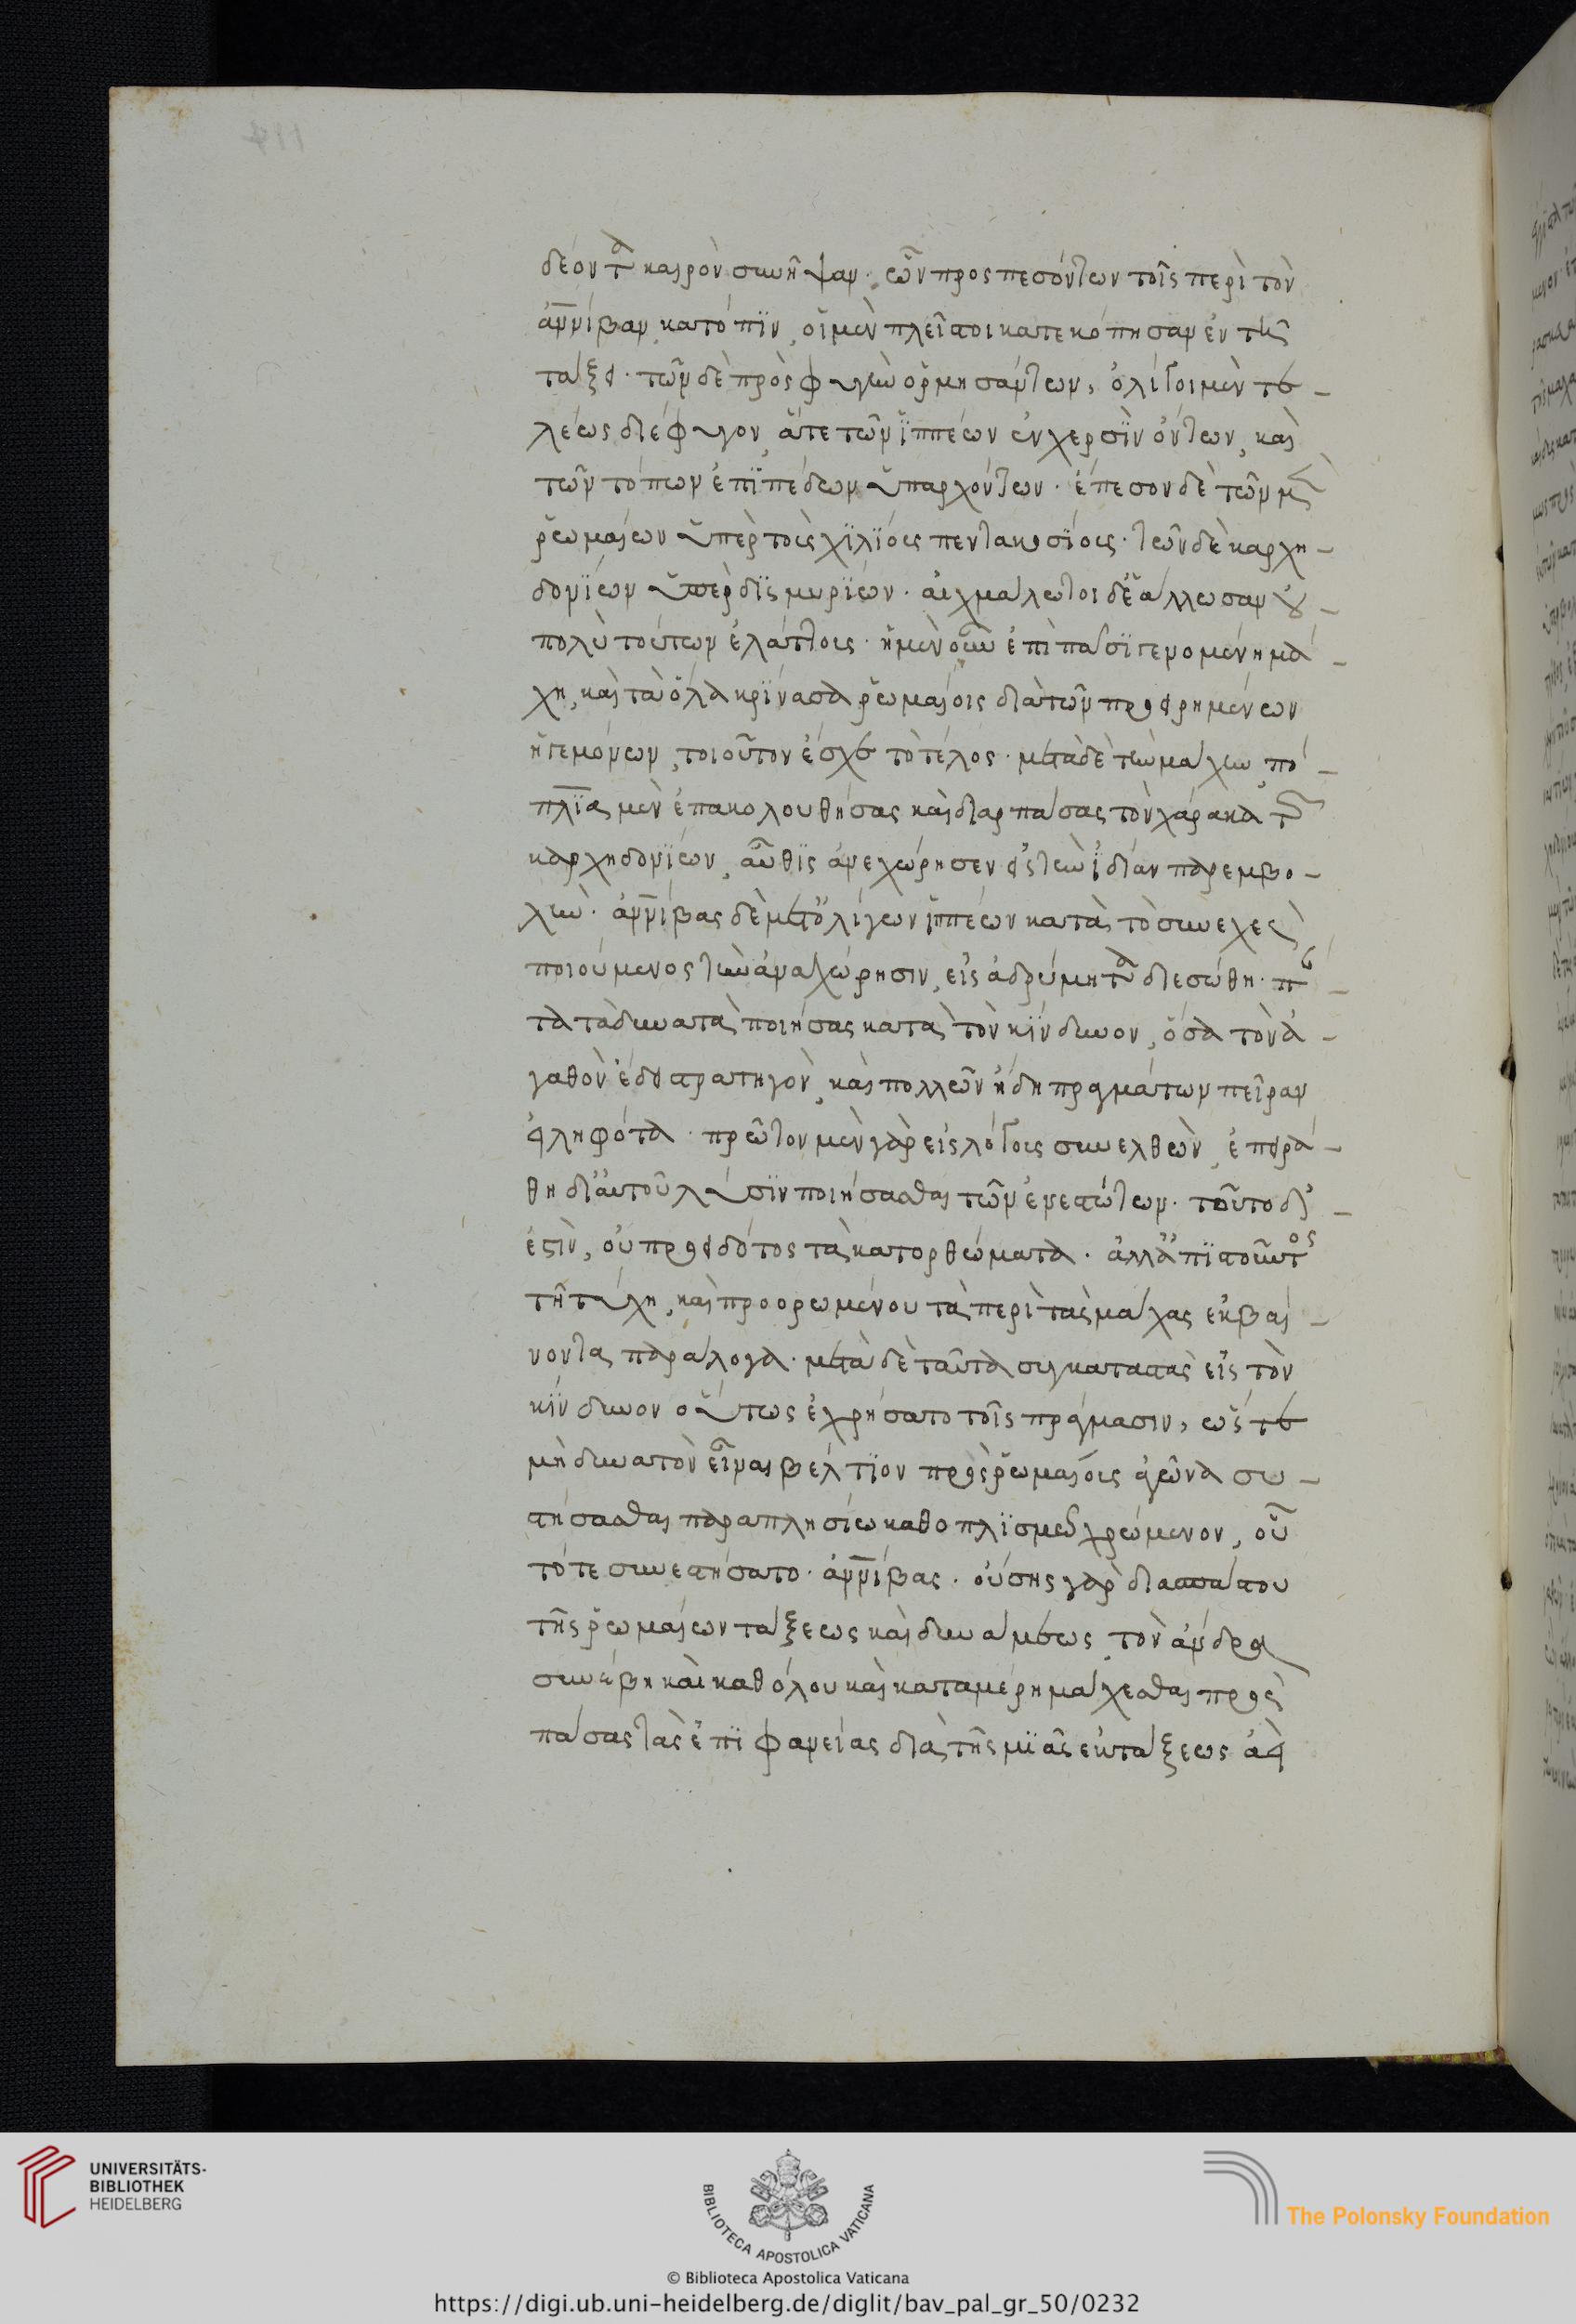 δέοντα καιρὸν συνῆψαν. ὧν προσπεσόντων τοῖς περὶ τὸν
ἀννίβαν κατόπιν, οἱ μὲν πλεῖστοι κατεκόπησαν ἐν τῇ
τάξει. τῶν δὲ πρὸς φυγὴν ὁρμησάντων, ὀλίγοι μὲν τε-
λέως διέφυγον, ἅτε τῶν ἱππέων ἐν χερσὶν ὄντων, καὶ
τῶν τόπων ἐπιπέδων ὑπαρχόντων. ἔπεσον δὲ τῶν μὲν
ῥωμαίων ὑπὲρ τοὺς χιλίους πεντακοσίους. τῶν δὲ καρχη-
δονίων ὑπὲρ δὶς μυρίων. αἰχμάλωτοι δ' ἑάλλωσαν οὐ
πολὺ τούτων ἐλάττους. ἡ μὲν οὖν ἐπὶ πᾶσι γενομένη μά-
χη, καὶ τὰ ὅλα κρίνασα ῥωμαίοις διὰ τῶν προειρημένων
ἡγεμόνων, τοιοῦτον ἔσχε τὸ τέλος. μετὰ δὲ τὴν μάχην, πό-
πλιος μὲν ἐπακολουθήσας καὶ διαρπάσας τὸν χάρακα τῶν
καρχηδονίων, αὖθις ἀνεχώρησεν εἰς τὴν ἰδίαν παρεμβο-
λήν. ἀννίβας δὲ μετ' ὀλίγων ἱππέων κατὰ τὸ συνεχὲς
ποιούμενος τὴν ἀναχώρησιν, εἰς ἀδρύμητα διεσώθη. πάν-
τα τὰ δυνατὰ ποιήσας κατὰ τὸν κίνδυνον, ὅσα τὸν ἀ-
γαθὸν ἔδει στρατηγὸν, καὶ πολλῶν ἤδη πραγμάτων πεῖραν
εἰληφότα. πρῶτον μὲν γὰρ εἰς λόγους συνελθὼν, ἐπειρά-
θη δι' αὑτοῦ λύσιν ποιήσασθαι τῶν ἐνεστώτων. τοῦτο δ'
ἐστὶν, οὐ προειδότος τὰ κατορθώματα. ἀλλ' ἀπιστοῦντος
τῇ τύχῃ, καὶ προορωμένου τὰ περὶ τὰς μάχας ἐκβαί-
νοντα παράλογα. μετὰ δὲ ταῦτα συγκαταστὰς εἰς τὸν
κίνδυνον οὕτως ἐχρήσατο τοῖς πράγμασιν, ὥστε
μὴ δυνατὸν εἶναι βέλτιον πρὸς ῥωμαίους ἀγῶνα συ-
στήσασθαι παραπλησίῳ καθοπλισμῷ χρώμενον, οὗ
τότε συνεστήσατο. ἀννίβας. οὔσης γὰρ δυσσπάστου
τῆς ῥωμαίων τάξεως καὶ δυνάμεως, τὸν ἄνδρα
συνέβη καὶ καθόλου καὶ κατὰ μέρη μάχεσθαι πρὸς
πάσας τὰς ἐπιφανείας διὰ τῆς μιᾶς ἐκτάξεως ἀεὶ
UNIVERSITÄTS-
BIBLIOTHEK
HEIDELBERG
BIBLIOTECA APOSTOLICA VATICANA
The Polonsky Foundation
© Biblioteca Apostolica Vaticana
https://digi.ub.uni-heidelberg.de/diglit/bav_pal_gr_50/0232